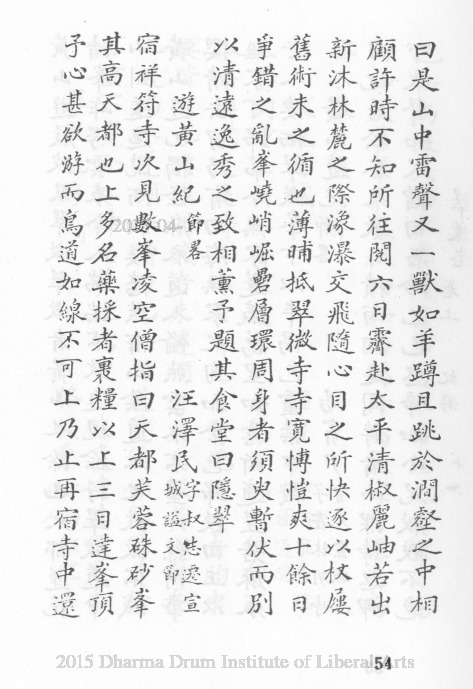 曰是山中雷聲又一獸如羊蹲且跳於澗壑之中相
顧許時不知所往閱六日霽赴太平清椒麗岫若出
新沐林麓之際濠瀑交飛隨心目之所快逐以杖屨
舊術未之循也薄晡抵翠微寺寺寬博愷爽十餘日
爭錯之亂峯嶢峭崛礨層環周身者須臾暫伏而別
以清遠逸秀之致相薰予題其食堂曰隱翠
遊黃山紀節畧 汪澤民字叔志遷宣城謚文節
宿祥符寺次見數峯凌空僧指曰天都芙蓉硃砂峯
其高天都也上多名藥採者裹糧以上三日達峯頂
予心甚欲游而鳥道如線不可上乃止再宿寺中還
54
2015 Dharma Drum Institute of Liberal Arts